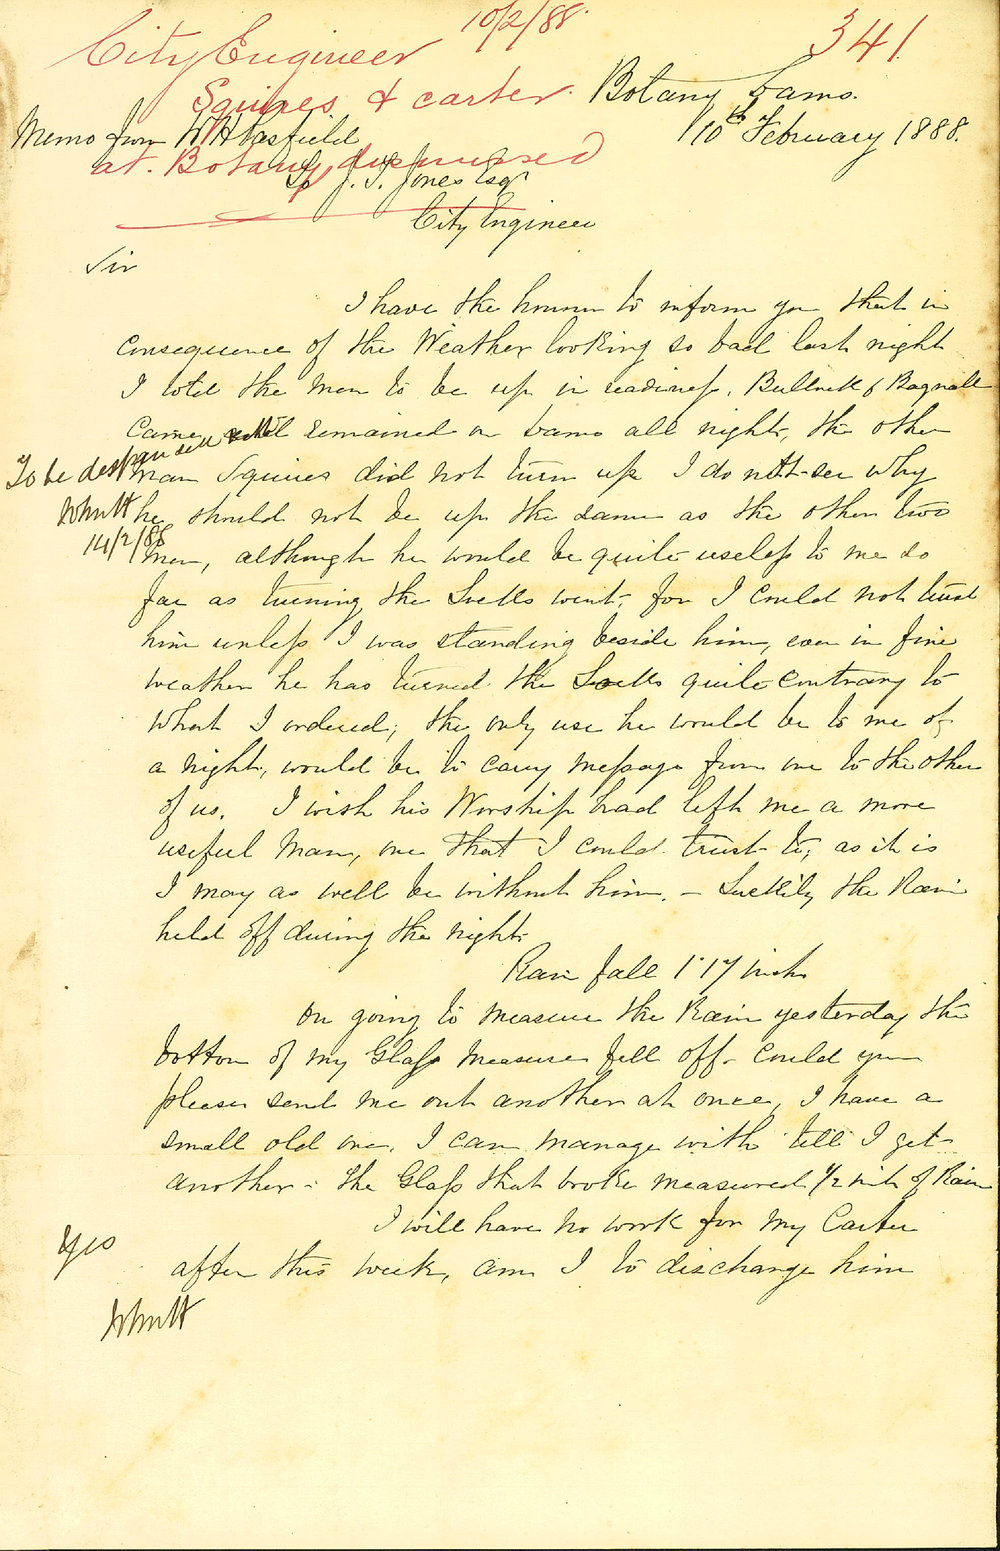 10/2/88.
City Engineer
341.
Squires & carter.
Botany Dams.
Memo from W H
10th February 1888.
at. Botany dispensed
To J. T. Jones Esqr
City Engineer
Sir
I have the honor to inform you that in
consequence of the Weather looking so bad last night
I told the men to be up in readiness, Bullnell & Bagnall
Came and remained on Dams all night, the other
man Squires did not turn up I do not see why
he should not be up the same as the other two
men, although he would be quite useless to me so
far as turning the Sveills went, for I could not trust
him unless I was standing beside him, even in fine
weather he has turned the quite contrary to
what I ordered; the only use he would be to me of
a night, would be to carry message from one to the other
of us. I wish his Worship had left me a more
useful Man, one that I could trust to; as it is
I may as well be without him. – Luckily the Rain
held off during the night.
Rain fall 1.17 inch
On going to measure the Rain yesterday the
bottom of my Glass measure fell off. Could you
please send me out another at once, I have a
small old one, I can manage with till I get
another – the Glass that broke measured 1/2 inch of Rain
I will have no work for my Carter
after this week, am I to discharge him
To be dispensed with
14/2/88
Yes